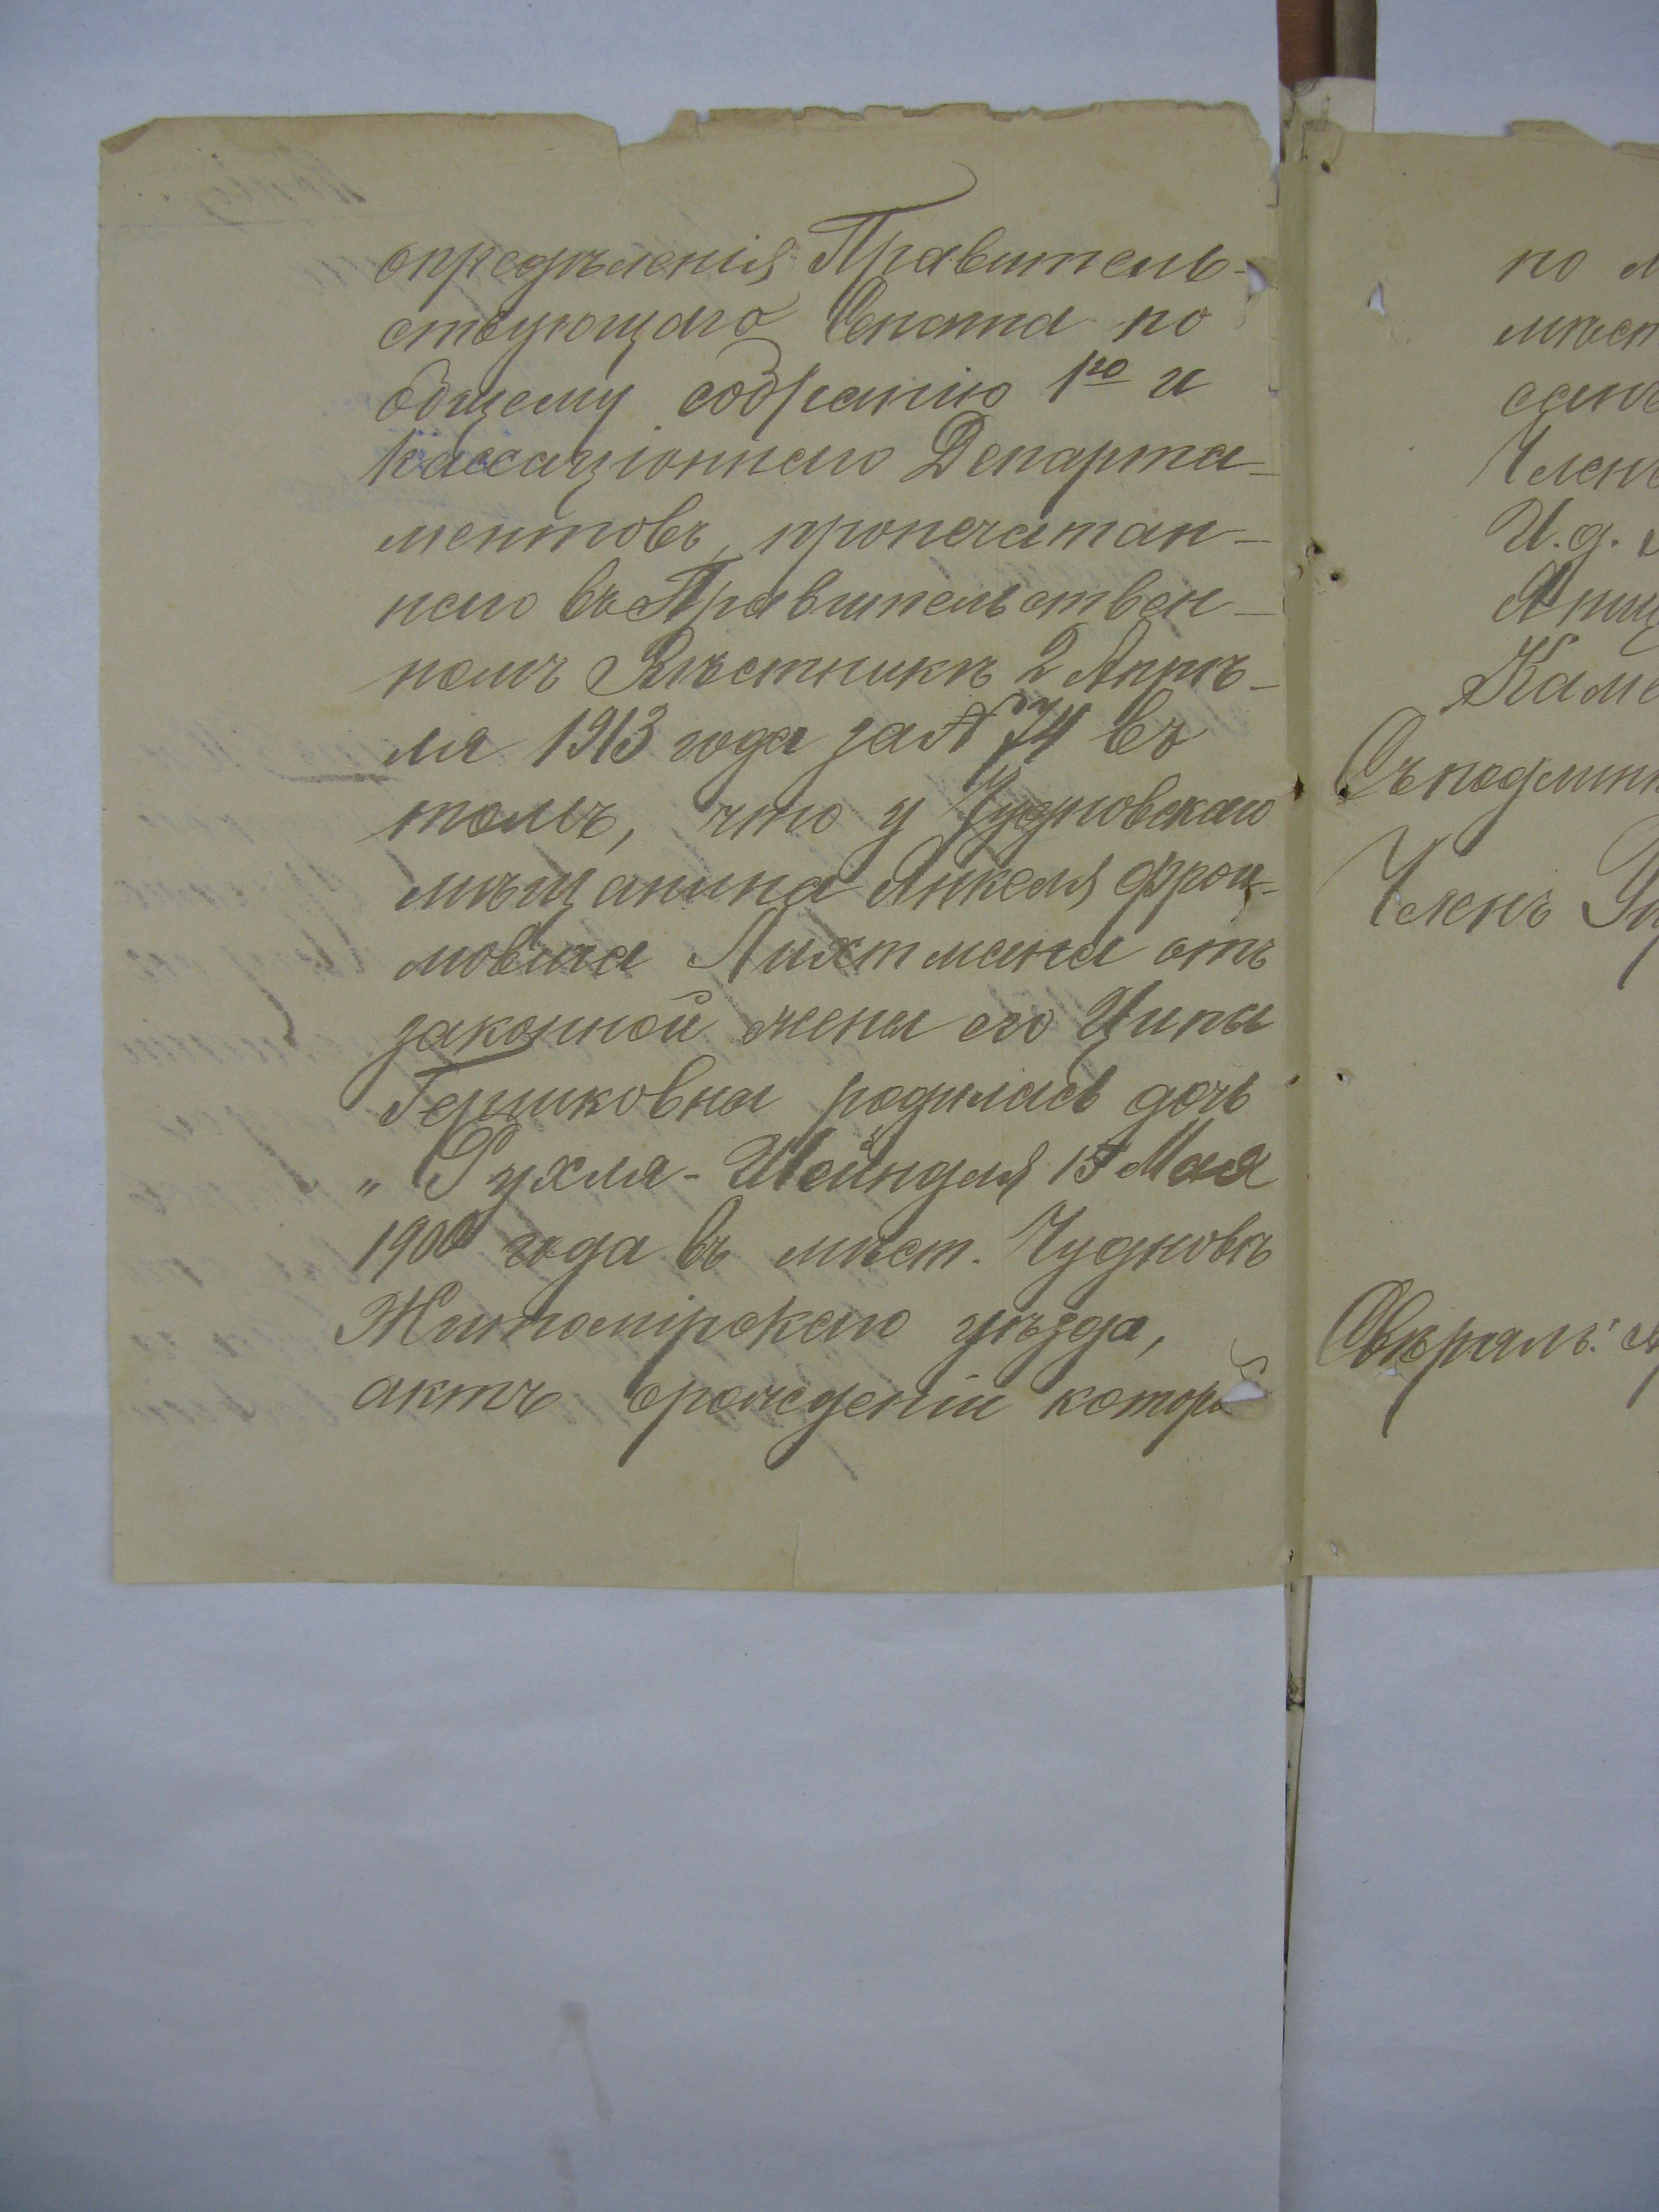 опредѣленія Правитель-
ствующаго Сената по
общему собранію 1го и
Кассаціоннаго Департа-
ментовъ, пропечатан-
наго въ Правительствен-
номъ Вѣстникѣ 2 Апрѣ-
ля 1913 года за № 74 въ
томъ, что у Чудновскаго
мѣщанина Янкеля Фрои-
мовича Лихтмана отъ
законной жены его Ципы
Гершковны родилась дочь
„Рухля-Шейндля 15 Мая
1900 года въ мѣст. Чудновѣ
Житомірскаго уѣзда,
актъ о рожденіи котор
по
мѣст
Член
И. д.
Каме
Съ подлинн
Членъ
Свѣрялъ: